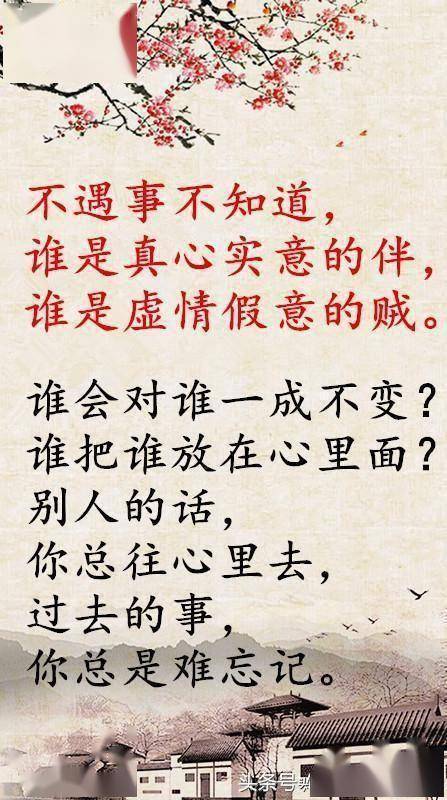 不遇事不知道，
谁是真心实意的伴，
谁是虚情假意的贼。
谁会对谁一成不变？
谁把谁放在心里面？
别人的话，
你总往心里去，
过去的事，
你总是难忘记。
头条号